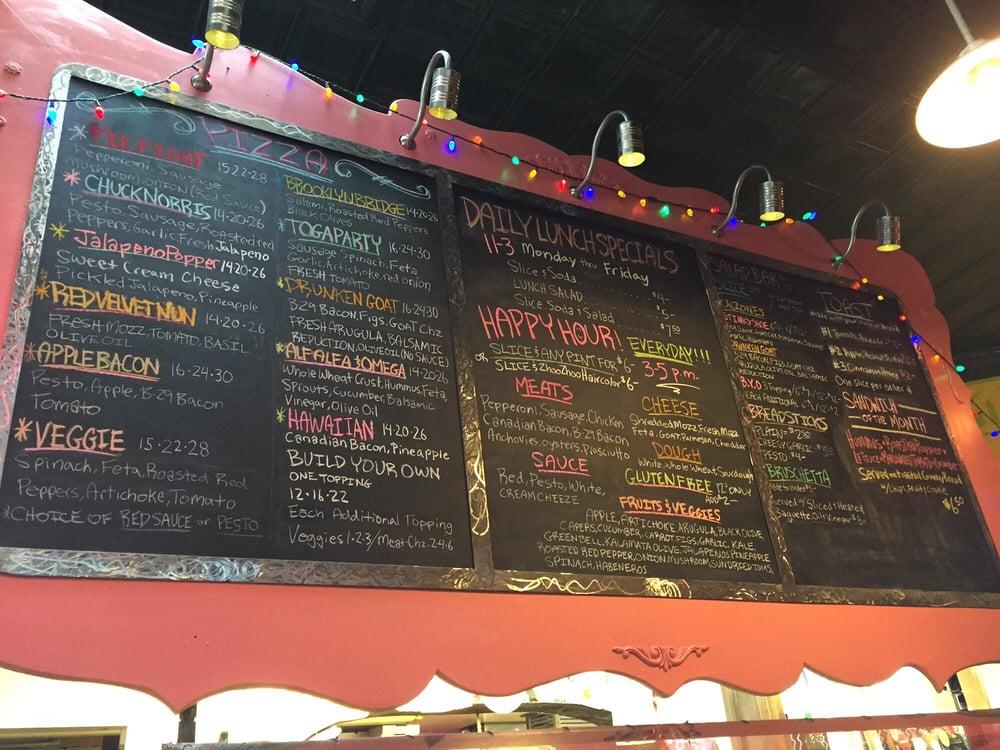 PIZZA
*PIE FIGHT 15-22-28
Pepperoni, Sausage
Mushroom, Onion (Red Sauce)
*CHUCK NORRIS 14-20-26
Pesto, Sausage, Roasted red
Peppers, Garlic Fresh Jalapeno
*Jalapeno Popper 14-20-26
Sweet Cream Cheese
Pickled Jalapeno, Pineapple
*RED VELVET NUN 14-20-26
FRESH MOZZ, TOMATO, BASIL
OLIVE OIL
*APPLE BACON 16-24-30
Pesto, Apple, B-29 Bacon
Tomato
*VEGGIE 15-22-28
Spinach, Feta, Roasted Red
Peppers, Artichoke, Tomato
*CHOICE OF RED SAUCE or PESTO
BROOKLYN BRIDGE 14-20-26
Salami, Roasted Red Peppers
Black Olives
*TOGA PARTY 16-24-30
Sausage, Spinach, Feta
Garlic, Artichoke, red onion
FRESH TOMATO
*DRUNKEN GOAT 16-24-30
B29 Bacon, Figs, Goat Chz
FRESH ARUGULA, BALSAMIC
REDUCTION, OLIVE OIL (NO SAUCE)
*ALFALFA & OMEGA 14-20-26
Whole Wheat Crust, Hummus, Feta,
Sprouts, Cucumber, Balsamic
Vinegar, Olive Oil
*HAWAIIAN 14-20-26
Canadian Bacon, Pineapple
BUILD YOUR OWN
ONE-TOPPING
12-16-22
Each Additional Topping
Veggies 1-2-3/Meat-Chz 2-4-6
DAILY LUNCH SPECIALS
11-3 Monday thru Friday
Slice & Soda $4-
LUNCH SALAD $5-
Slice Soda & Salad $7.50
HAPPY HOUR! EVERYDAY!!!
SLICE & ANY PINT FOR $6-
OR SLICE & ZhooZhoo Haircolor $6-
3-5 p.m.
MEATS
Pepperoni, Sausage, Chicken
Canadian Bacon, B-29 Bacon
Anchovies, oysters, Prosciutto
SAUCE
Red, Pesto, White,
CREAM CHEEZE
CHEESE
Shredded Mozz, Fresh Mozz
Feta, Goat, Parmesan, Cheddar
DOUGH
White, Whole Wheat, Sourdough
GLUTEN FREE 12" ONLY
ADD $2-
FRUITS & VEGGIES
APPLE, ARTICHOKE, ARUGULA, BLACK OLIVE,
CAPERS, CUCUMBER, CARROT, FIGS, GARLIC, KALE,
GREEN BELL, KALAMATA OLIVE, JALAPENOS, PINEAPPLE
ROASTED RED PEPPER, ONION, MUSHROOM, SUNDRIED TOMS,
SPINACH, HABENEROS
SALAD BAR
SLICE
KALZONES
STINKY SIDE
DRUNKEN GOAT
B.Y.O
EACH ADDITIONAL
BREADSTICKS
PLAIN
CHEESY GARLIC
PESTO
BRUSCHETTA
Served w/ Sliced & Heated
Baguette
TOAST
One Slice per order
SANDWICH
OF THE MONTH
Hummus, Roasted Pepper
Served on
w/ Chips, Fruit, Cookie
$6.50